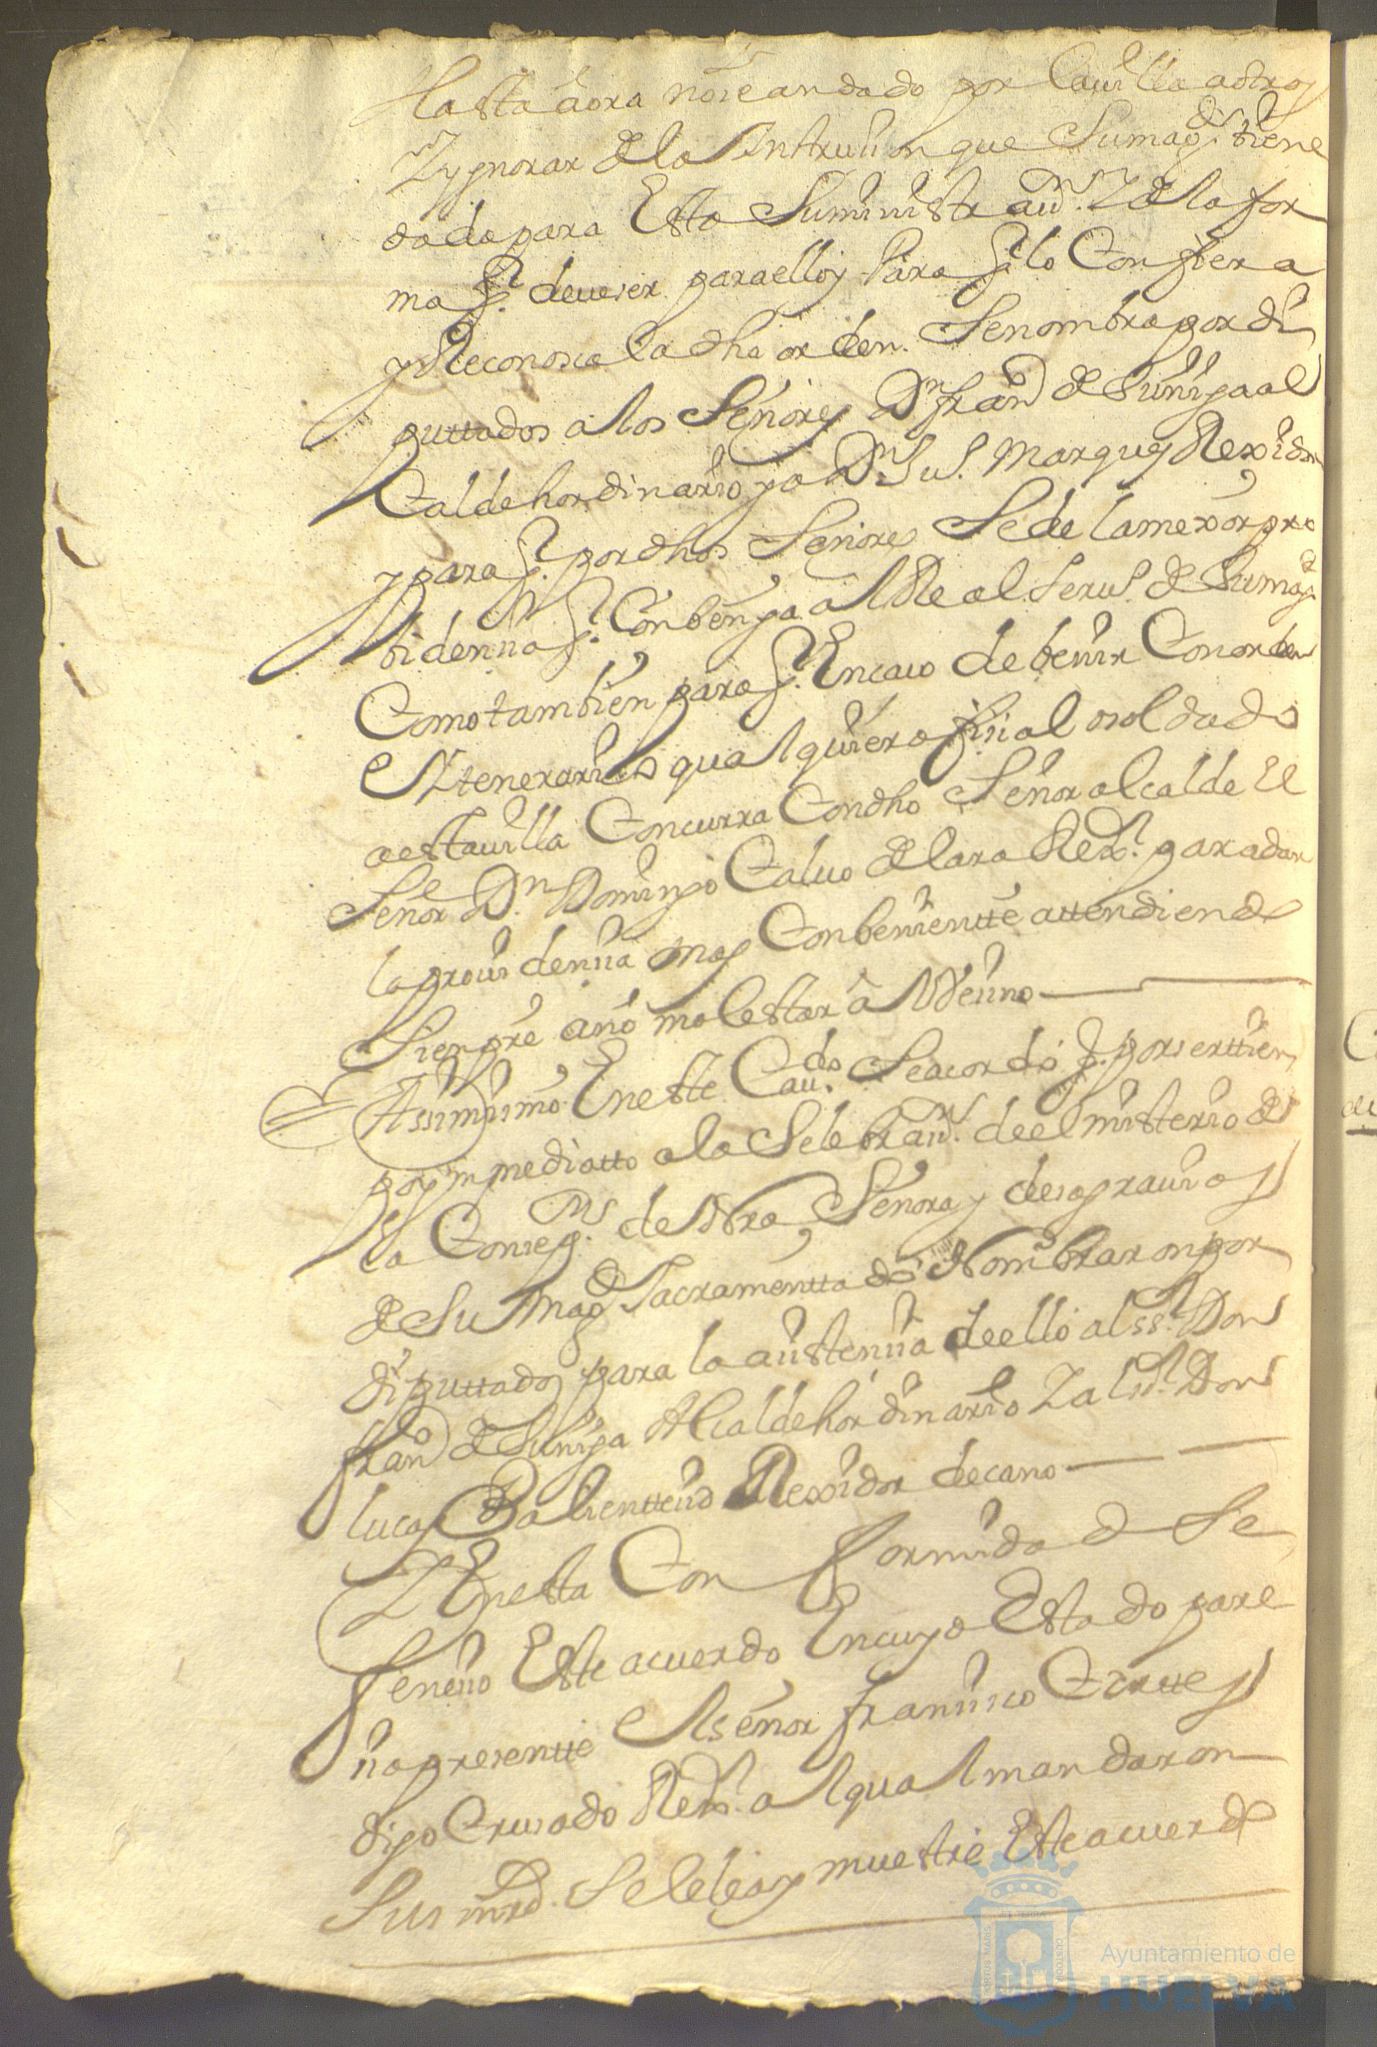 Hasta aora no se an dado por la uilla a otros
Y ygnorar de la Yntrusion que Su magd. tiene
dada para Esta Suministraon. Y de la for
ma q. deue ser para ellos Para q. lo Confiera
y Reconosca la dha orden. Se nombra por di
puttados a los Señores Dn. fran de Suniga al
Calde hordinario y a Dn. Ju. Marques Rexidor
y para q. por dhos Señores Se de la mexor pro
bidencia q. Conbenga al Real Serus. de Su magd.
Como tambien para q. En caso de benir Con orden
e Ytenerarios qualquiera fisial o soldado
a esta uilla Concurra Con dho Señor alcalde El
Señor Dn. Domingo Caluo de lara Rexr. para dar
la prouidencia mas Conbenientte attendiendo
Siempre a no molestar al Vecino
Assimismo En este Caudo. Se acordo q. por ser ttiem
po ynmediatto a la Selebraon. de el misterio de
la Consepon. de Nra Señora y desagrauios
de Su Magd Sacramenttado Nombraron por
diputtados para la asistencia de ello al ssr. Don
fran de Suniga Alcalde hordinario Y al sr. Don
lucas Balienttecio Rexidor decano
Y En esta Conformidad Se
fenecio Este acuerdo En cuyo Estado pare
cio presentte el señor fransisco Corttes
digo Crusado Rexr. al qual mandaron
Sus mrds. Se le lea y muestre Este acuerdo
Ayuntamiento de
HUELVA